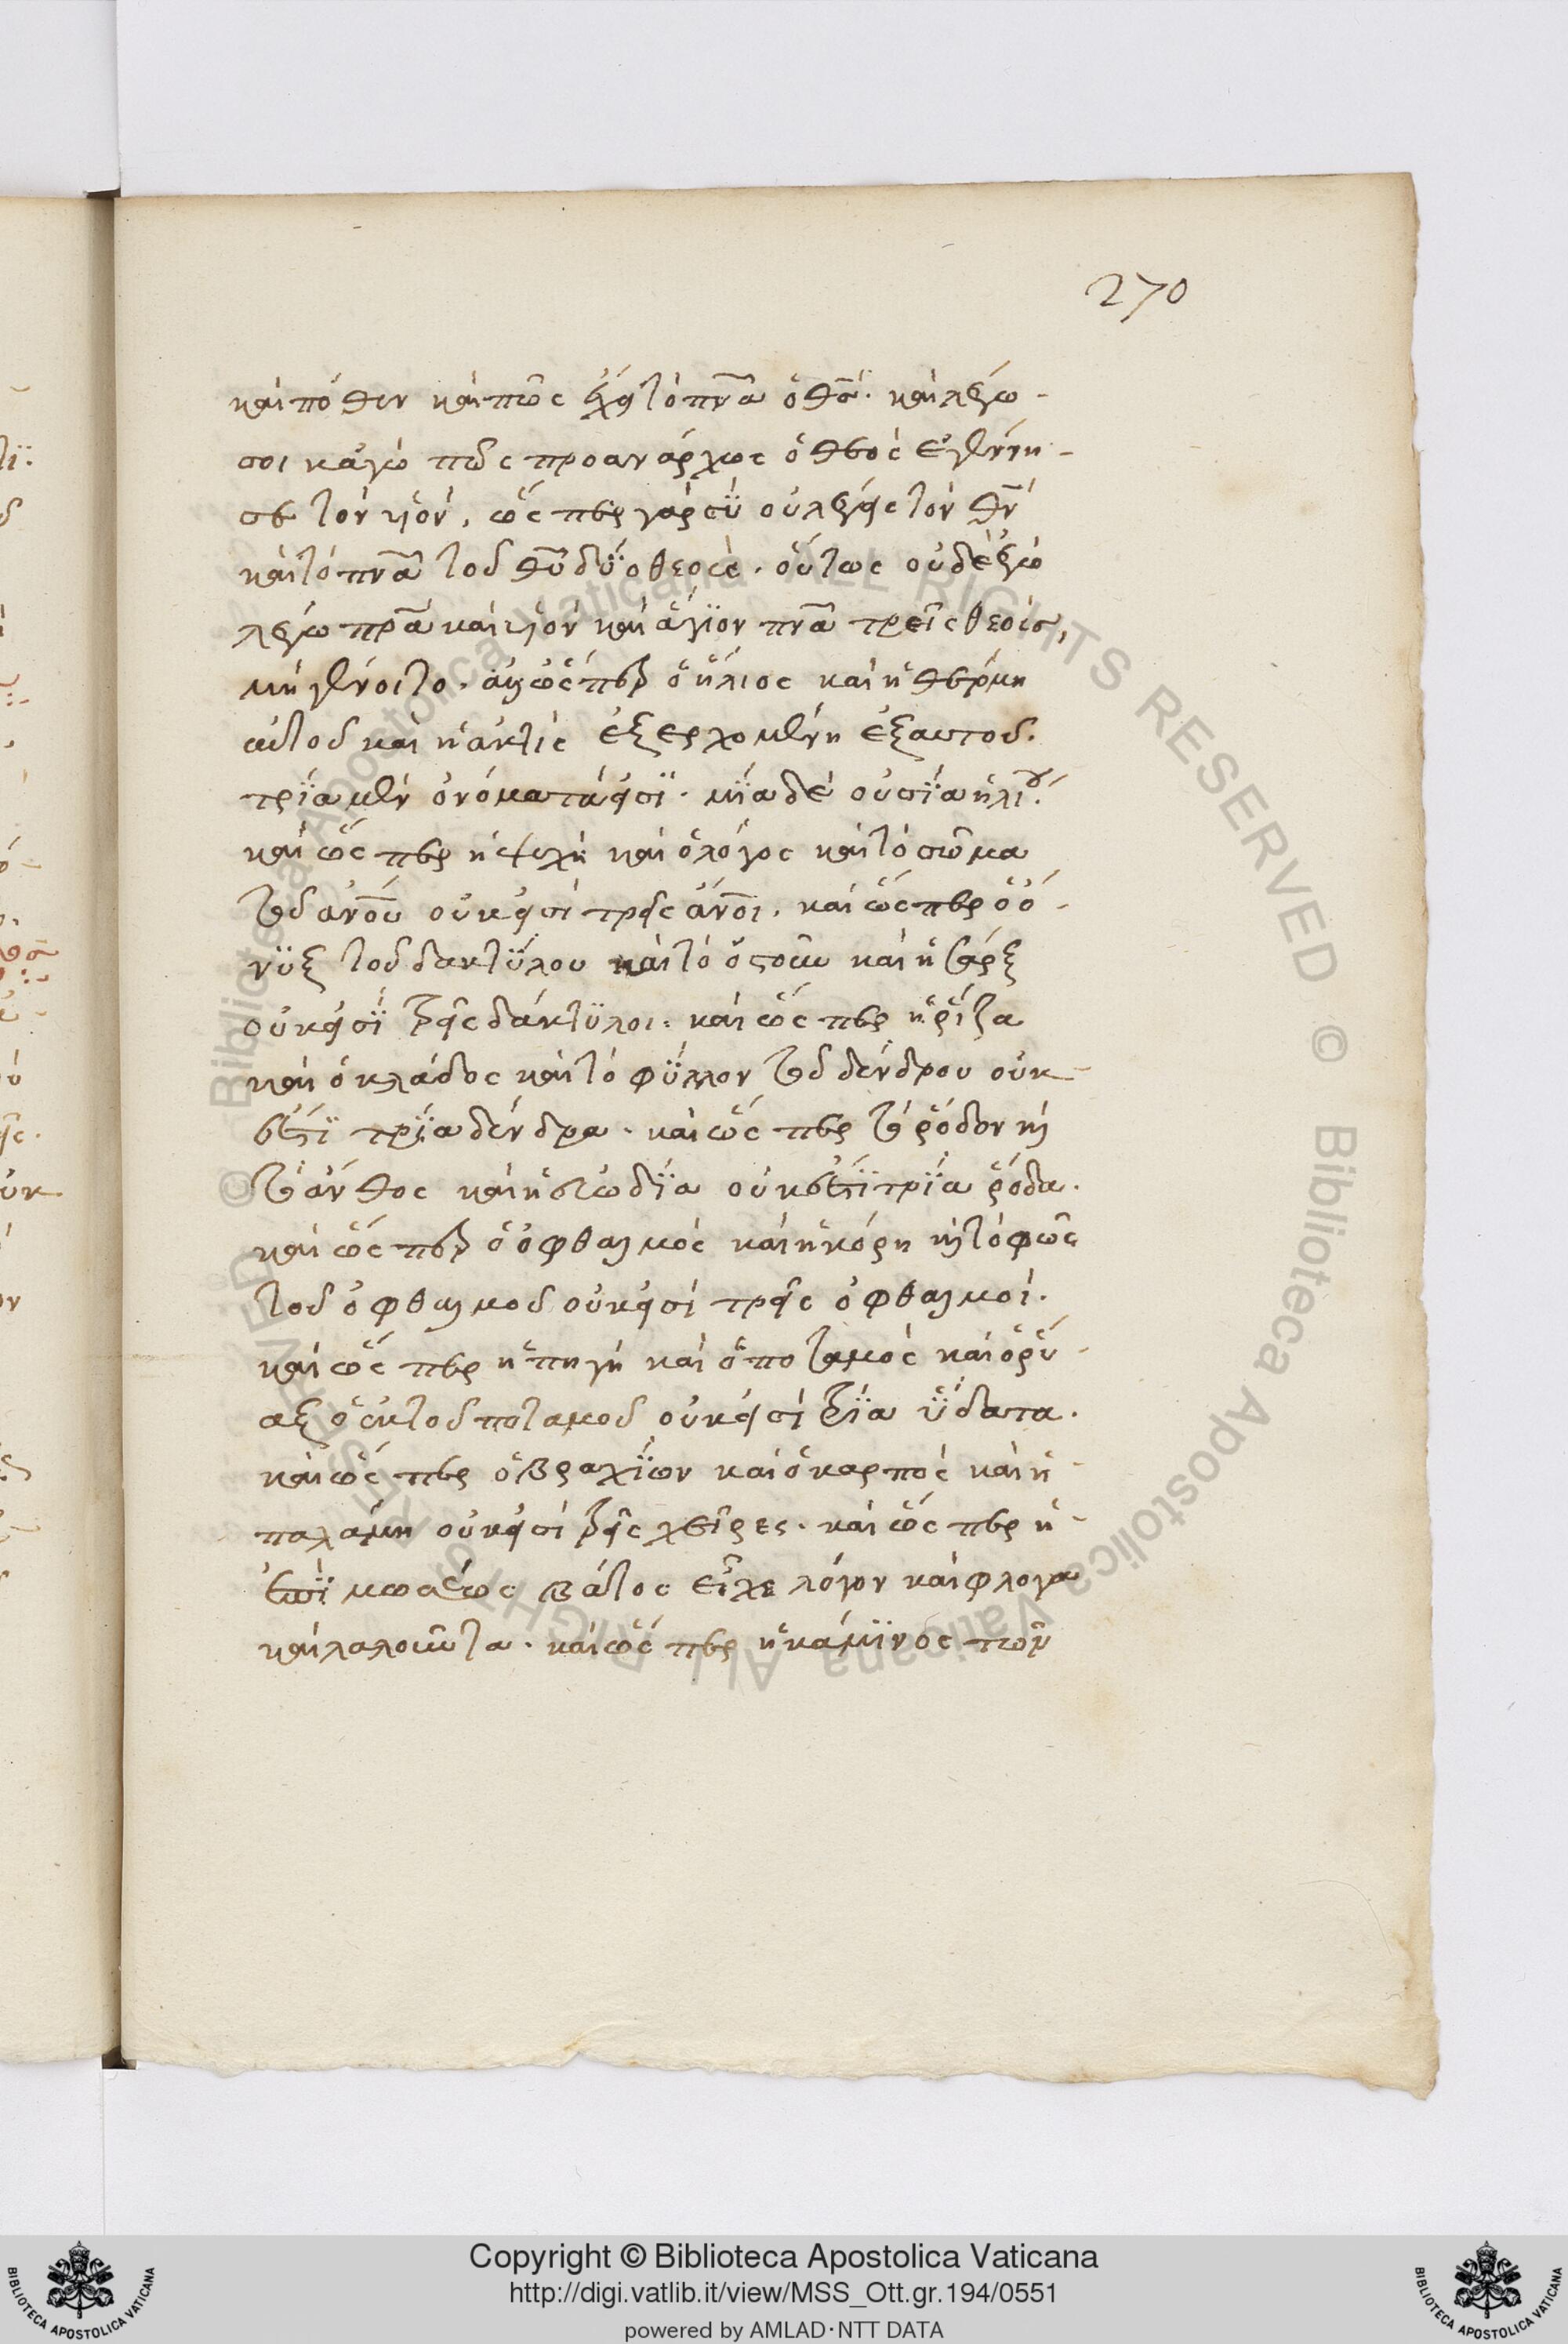 270
καὶ πόθεν καὶ πῶς ἔχει τὸ πνᾶ ὁ θσ̄. καὶ λέγω
σοι κἀγὼ πῶς προανάρχως ὁ θεὸς ἐγέννη-
σε τὸν υἱὸν, ὥς περ γὰρ σὺ οὐ λέγεις τὸν θν̄
καὶ τὸ πνᾶ τοῦ θῦ δύο θεοὺς. οὕτως οὐδὲ ἐγὼ
λέγω πρᾶ καὶ υἱὸν καὶ ἅγϊον πνᾶ τρεῖς θεοὺσ,
μὴ γένοιτο. ἀλλ' ὥς περ ὁ ἥλιος καὶ ἡ θέρμη
αὐτοῦ καὶ ἡ ἀκτὶς ἐξερχομένη ἐξ αυτοῦ.
τρΐα μὲν ὀνόματα εἰσῒ. μΐα δὲ οὐσΐα ἡλίου.
καὶ ὥς περ ἡ ψυχὴ καὶ ὁ λόγος καὶ τὸ σῶμα
τοῦ ἀνοῦ οὐκ εἰσὶ τρεῖς ἄνοι. καὶ ὥς περ ὁ ὄ-
νϋξ τοῦ δακτΰλου καὶ τὸ ὀστοῦν καὶ ἡ σάρξ
οὐκ εἰσῒ τρεῖς δάκτϋλοι. καὶ ὥς περ ἡ ῥίζα
καὶ ὁ κλάδος καὶ τὸ φΰλλον τοῦ δένδρου οὐκ
ἔστϊ τρΐα δένδρα. καὶ ὥς περ τὸ ῥόδον καὶ
τὸ ἄνθος καὶ ἡ εὐωδΐα οὐκ ἔστϊ τρΐα ῥόδα.
καὶ ὥς περ ὁ ὀφθαλμὸς καὶ ἡ κόρη καὶ τὸ φῶς
τοῦ ὀφθαλμοῦ οὐκ εἰσὶ τρεῖς ὀφθαλμοὶ.
καὶ ὥς περ ἡ πηγὴ καὶ ὁ ποταμὸς καὶ ὁ ῥύ-
αξ ὁ ἐκ τοῦ ποταμοῦ οὐκ εἰσὶ τρΐα ΰδατα.
καὶ ὥς περ ὁ βραχΐων καὶ ὁ καρπὸς καὶ ἡ
παλάμη οὐκ εἰσὶ τρεῖς χεῖρες. καὶ ὥς περ ἡ
ἐπῒ μωσέως βάτος εἶχε λόγον καὶ φλογα
καὶ λαλοῦντα. καὶ ὥς περ ἡ κάμϊνος πῦρ
Copyright © Biblioteca Apostolica Vaticana
http://digi.vatlib.it/view/MSS_Ott.gr.194/0551
powered by AMLAD·NTT DATA